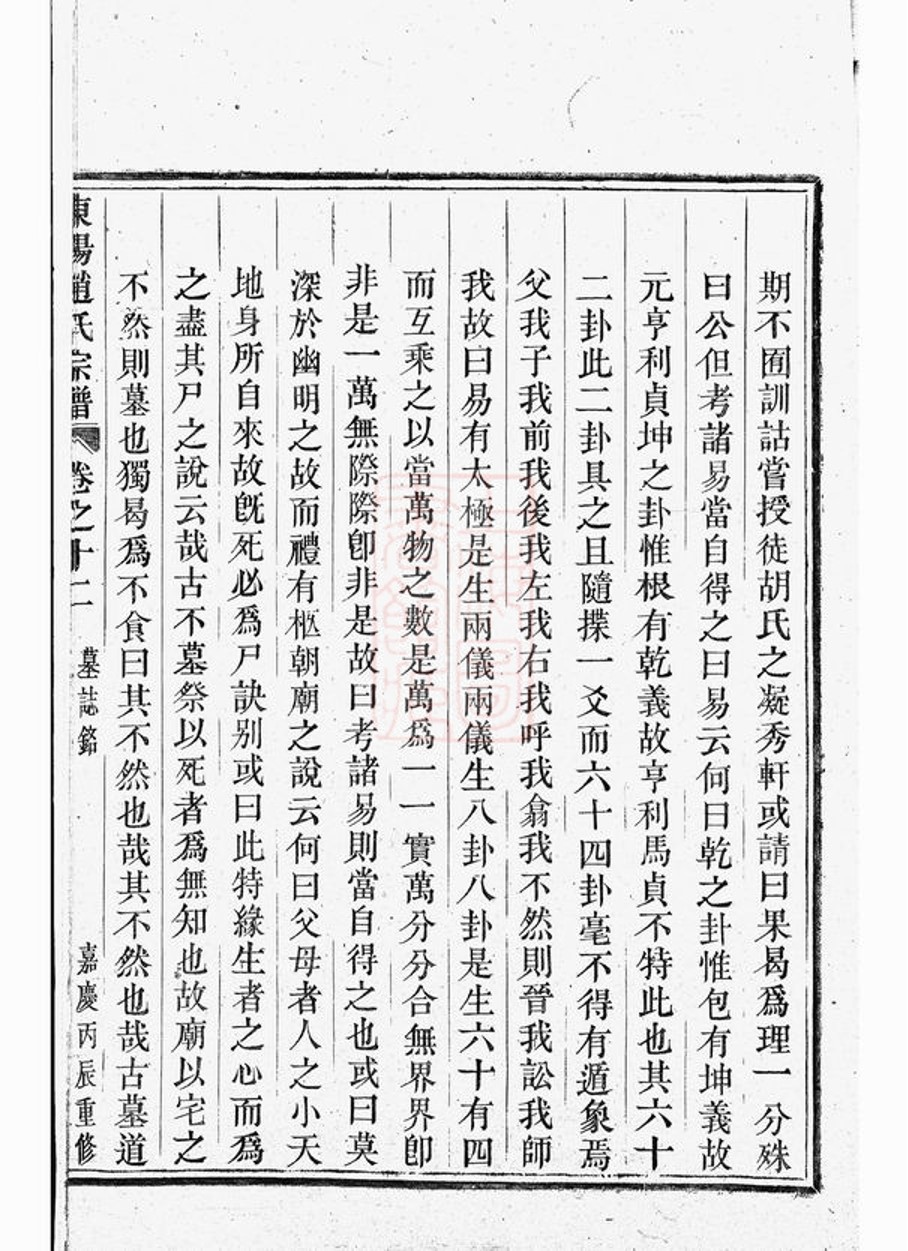 期不囿訓詁嘗授徒胡氏之凝秀軒或請曰果曷爲理一分殊
曰公但考諸易當自得之曰易云何曰乾之卦惟包有坤義故
元亨利貞坤之卦惟根有乾義故亨利馬貞不特此也其六十
二卦此二卦具之且隨揲一爻而六十四卦毫不得有遁象焉
父我子我前我後我左我右我呼我翕我不然則晉我訟我師
我故曰易有太極是生兩儀兩儀生八卦八卦是生六十有四
而互乘之以當萬物之數是萬爲一一實萬分分合無界界卽
非是一萬無際際卽非是故曰考諸易則當自得之也或曰莫
深於幽明之故而禮有柩朝廟之說云何曰父母者人之小天
地身所自來故旣死必爲尸訣别或曰此特緣生者之心而爲
之盡其尸之說云哉古不墓祭以死者爲無知也故廟以宅之
不然則墓也獨曷爲不食曰其不然也哉其不然也哉古墓道
東陽趙氏宗譜 卷之十二 墓誌銘 嘉慶丙辰重修